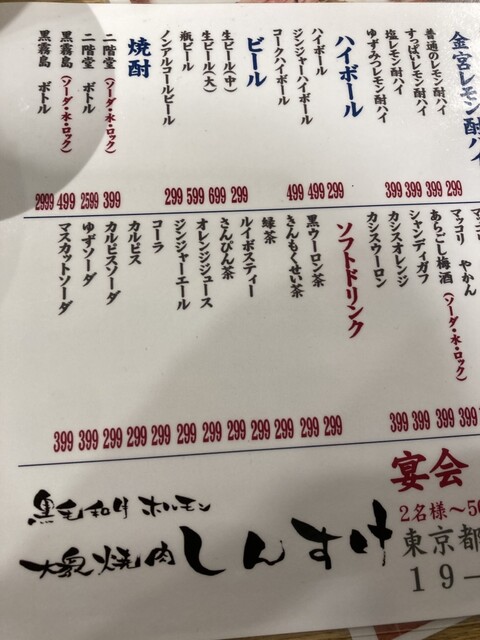 金宮レモン酎ハイ
普通のレモン酎ハイ 299
すっぱいレモン酎ハイ 399
塩レモン酎ハイ 399
ゆずみつレモン酎ハイ 399
ハイボール
ハイボール 299
ジンジャーハイボール 499
コークハイボール 499
ビール
生ビール(中) 299
生ビール(大) 699
瓶ビール 599
ノンアルコールビール 299
焼酎
二階堂(ソーダ・水・ロック) 399
二階堂 ボトル 2599
黒霧島(ソーダ・水・ロック) 499
黒霧島 ボトル 2999
マッコリ
マッコリ やかん
あらごし梅酒(ソーダ・水・ロック) 399
シャンディガフ 399
カシスオレンジ 399
カシスウーロン 399
ソフトドリンク
黒ウーロン茶 299
きんもくせい茶 299
緑茶 299
ルイボスティー 299
さんぴん茶 299
オレンジジュース 299
ジンジャーエール 299
コーラ 299
カルピス 299
カルピスソーダ 299
ゆずソーダ 399
マスカットソーダ 399
宴会
2名様~50
東京都
19-
黒毛和牛 ホルモン
大衆焼肉 しんすけ